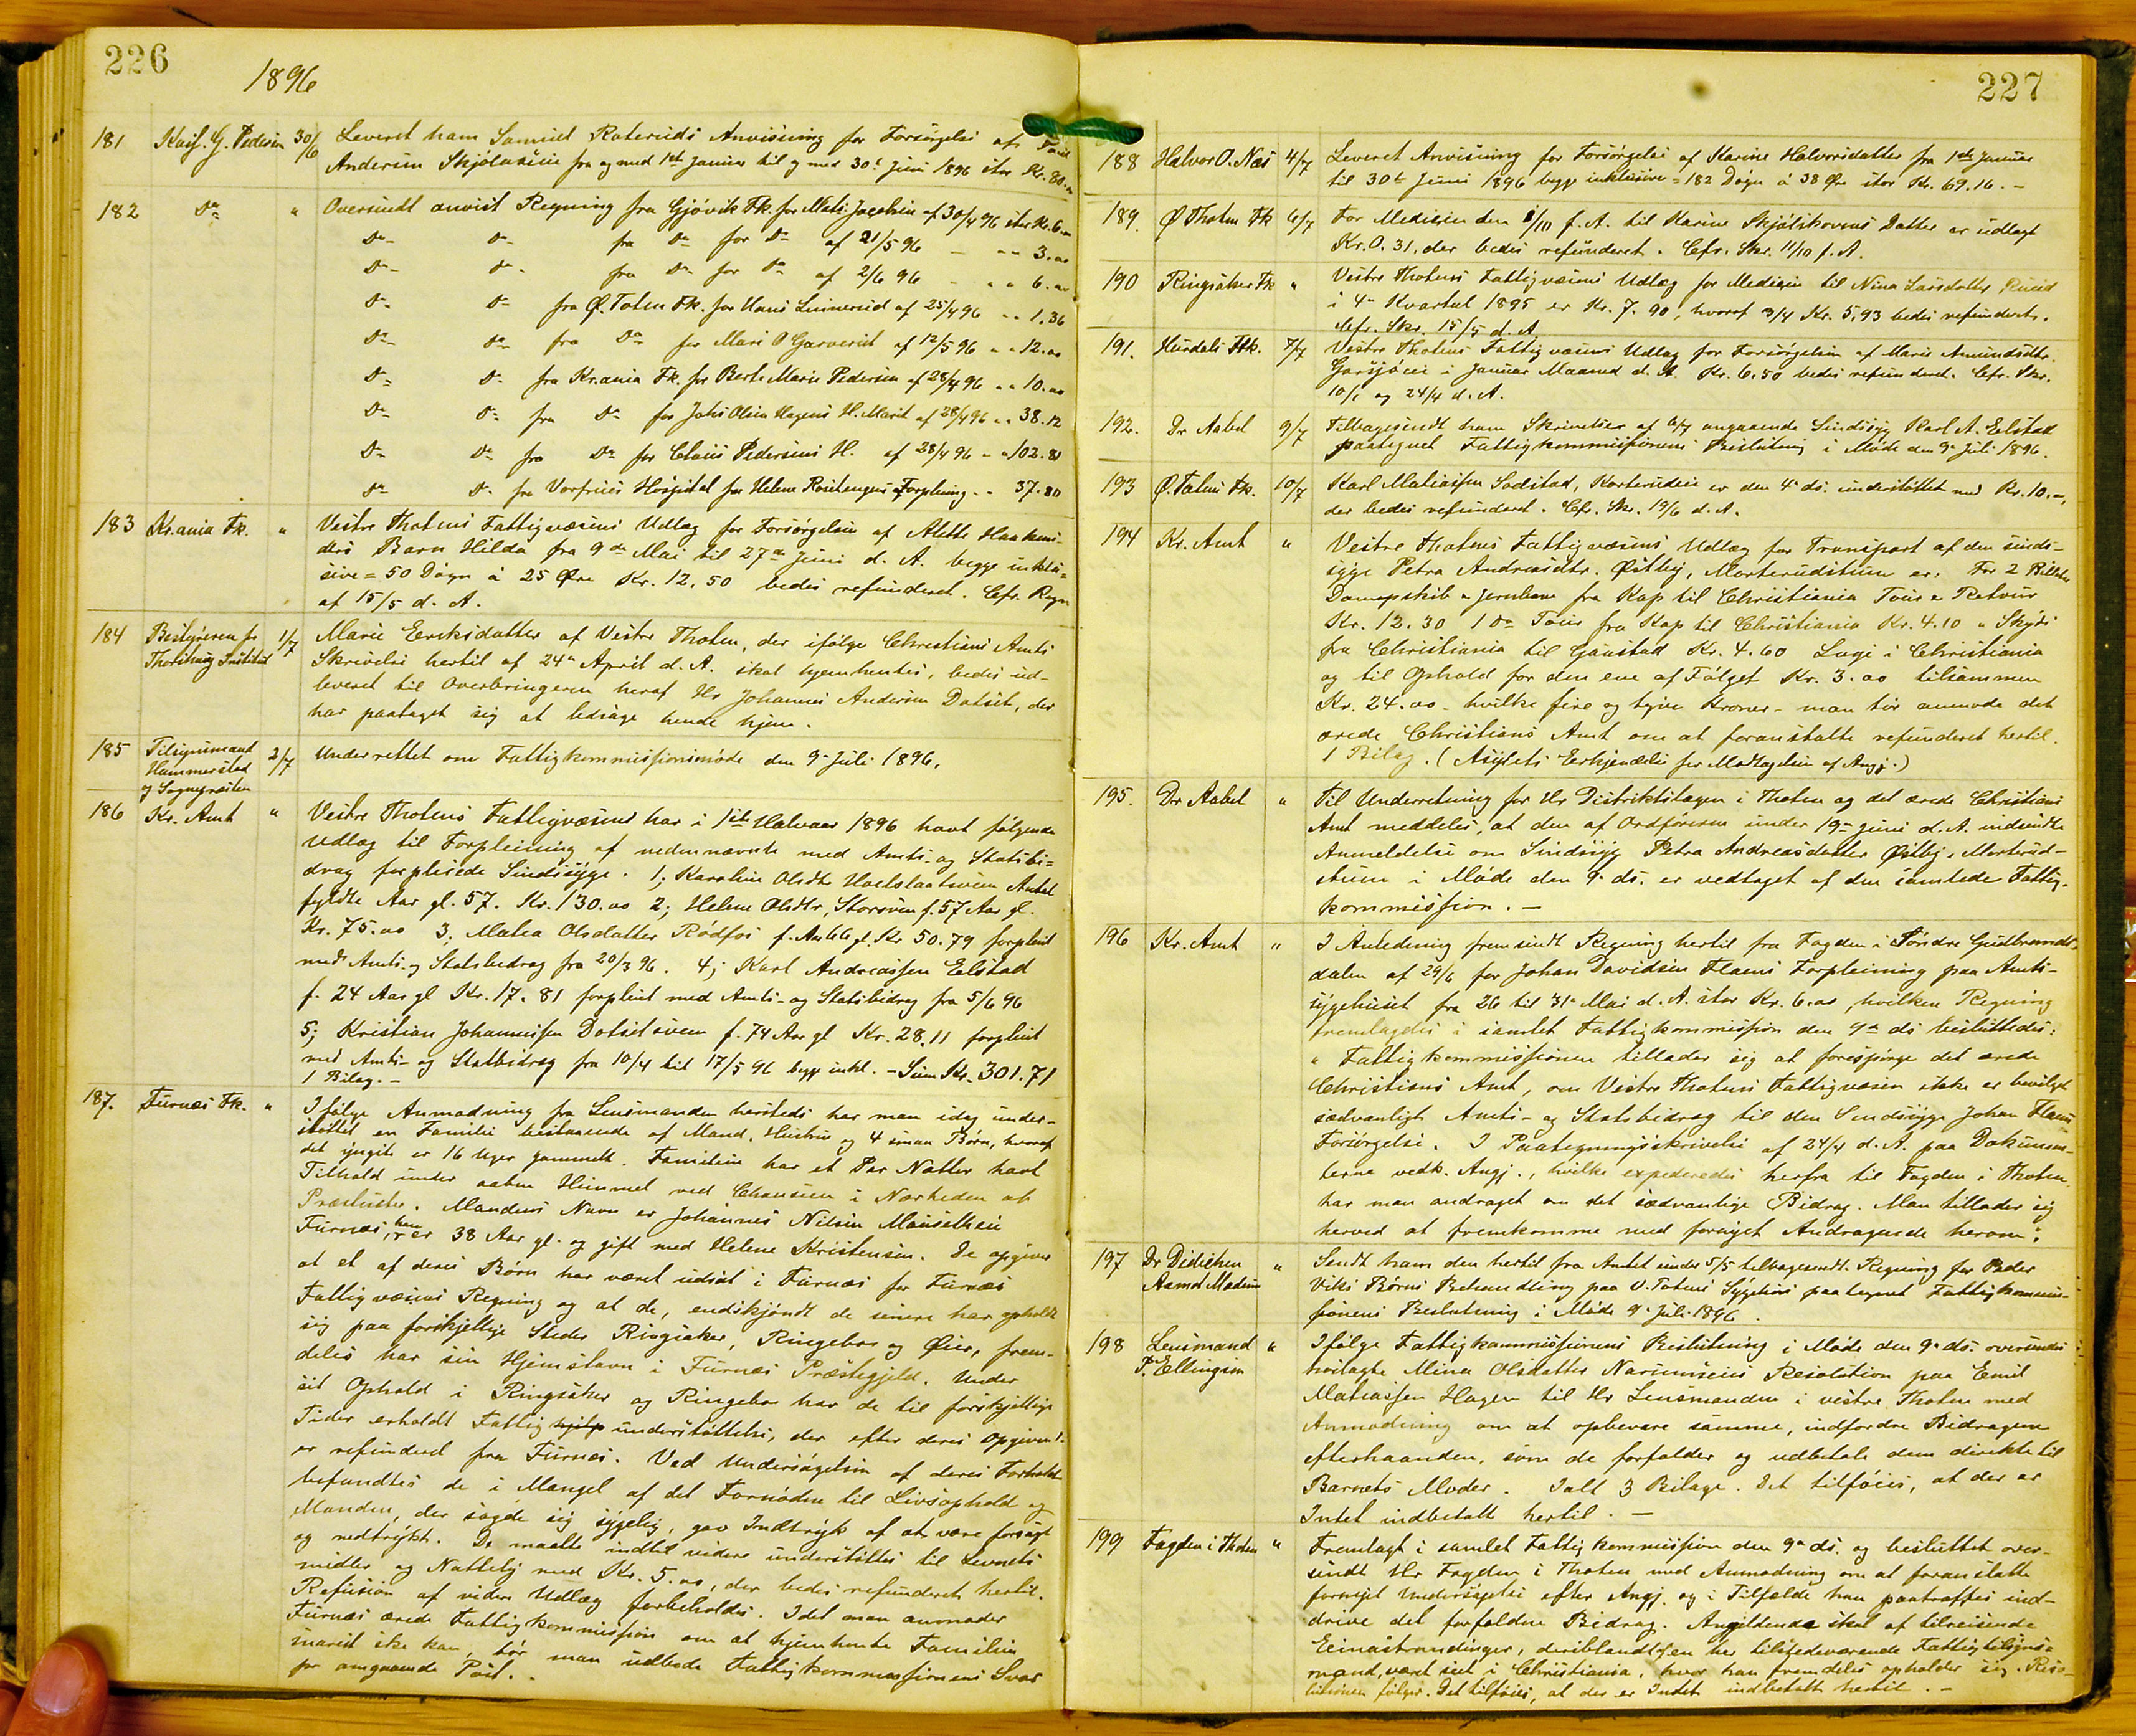 226
1896
181 Kass. G. Pedersen 30/6 Leveret ham Samuel Roteruds Anvisning for Forsørgelse af
Andersen Skjølaasen fra og med 1ste Januar til og med 30te Juni 1896 stor Kr. 80.
182 Do " Oversendt anvist Regning fra Gjøvik Fk. for Mathi Jacobsen af 30/4 96 stor Kr. 6.
Do Do fra Do for Do af 21/5 96 — " " 3.00
Do Do fra Do for Do af 2/6 96 - " " 6.
Do Do fra Ø. Toten Fk. for Hans Linnerud af 25/4 96 " " 1.36
Do Do fra Do for Mari O Garverist af 12/5 96 " " 12.00
Do Do fra Kr.ania Fk. for Berte Marie Pedersen af 28/4 96 " " 10.00
Do Do fra Do for Johs Olsen Hagens H. Marit af 28/4 96 " " 38.12
Do Do fra Do for Claus Pedersens H. af 28/4 96 - " 102.81
Do Do fra Vorfrues Hospital for Helene Rosenengens Forpleining - - 37.80
183 Kr.ania Fk. " Vestre Thotens Fattigvæsens Udlæg for Forsørgelsen af Alette Haakens-
ders Barn Hilda fra 9de Mai til 27de Juni d. A. begge inklu-
sive = 50 Døgn à 25 Øre Kr. 12.50 bedes refunderet. Cfr. Regn
af 15/5 d. A.
184 Bestyreren for 1/7 Marie Eeriksdatter af Vestre Thoten, der ifølge Christians Amts
Thorshaug Institut Skrivelse hertil af 24de April d. A. skal hjemhentes, bedes ud-
leveret til Overbringeren heraf Hr Johannes Andersen Dotset, der
har paataget sig at ledsage hende hjem.
185 Tilsynsmand 2/7 Underrettet om Fattigkommissionsmøde den 9de Juli 1896.
Hammerstad
og Sognepræsten
186 Kr. Amt " Vestre Thotens Fattigvæsen har i 1ste Halvaar 1896 havt følgende
Udlæg til Forpleining af nedennævnte med Amts- og Statsbi-
drag forpleiede Sindssyge. 1; Karoline Olsdtr
fyldte Aar gl. 57. Kr. 130.00 2; Helene Olsdtr, Storsveen f. 57 Aar gl.
Kr. 75.00 3; Malia Olsdatter Rødfos f. Aar gl. Kr 50.79 forpleiet
med Amts- og Statsbidrag fra 20/3 96. 4; Karl Andreassen Eelstad
f. 24 Aar gl Kr. 17.81 forpleiet med Amts- og Statsbidrag fra 5/6 96
5; Kristian Johannessen Dotsetsveen f. 74 Aar gl Kr. 28.11 forpleiet
med Amts- og Statbidrag fra 10/4 til 17/5 96 begge inkl. - Sum Kr. 301.71
1 Bilag. -
187. Furnæs Fk. " Ifølge Anmodning fra Lensmanden hersteds har man idag under-
støttet en Familie bestaaende af Mand, Hustru og 4 smaa Børn, hvoraf
det yngste er 16 Uger gammelt. Familien har et Par Nætter havt
Tilhold under aaben Himmel ved Chauseen i Nærheden af
. Mandens Navn er Johannes Nilsen Mausetheie
Furnæs, han er 38 Aar gl. og gift med Helene Kristensen. De opgiver
at et af deres Børn har været udsat i Furnæs for Furnæs
Fattigvæsens Regning og at de, endskjøndt de senere har opholdt
sig paa forskjellige Steder Ringsaker, Ringebo og Øier, frem-
deles har sin Hjemstavn i Furnæs Præstegjeld. Under
sit Ophold i Ringsaker og Ringebo har de til forskjellige
Tider erholdt Fattighjelp understøttelse, der efter deres Opgivende
er refunderet fra Furnæs. Ved Undersøgelsen af deres Forhold
befandtes de i Mangel af det Fornødne til Livsophold og
Manden, der sagde sig sygelig, gav Indtryk af at være forsagt
og nedtrykt. De maatte indtil videre understøttes til Levnets
midler og Natteley med Kr. 5.00, der bedes refunderet hertil.
Refusion af videre Udlæg forbeholdes. Idet man anmoder
Furnæs ærede Fattigkommission om at hjemhente Familien
snarest ske kan, tør man udbede Fattigkommissionens Svar
pr omgaaende Post. -
227
188 Halvor O. Næs 4/7 Leveret Anvisning for Forsørgelse af Karine Halvorsdatter fra 1ste Januar
til 30te Juni 1896 begge inklusive = 182 Døgn à 38 Øre stor Kr. 69.16. -
189. Ø Thoten Fk 6/7 For Medicin den /10 f. A. til Karine Skjølskovens Datter er udlagt
Kr. 0.31, der bedes refunderet. Cfr. Skr. 11/10 f. A.
190 Ringsaker Fk " Vestre Thotens Fattigvæsens Udlæg for Medicin til Nina Larsdatter Ruud
i 4de Kvartal 1895 er Kr. 7.90, hvoraf 3/4 Kr. 5,93 bedes refunderet.
Cfr. Skr. 15/5 d. A.
191. Hurdals Fk. 7/7 Vestre Thotens Fattigvæsens Udlæg for Forsørgelsen af Marie Amundsdtr.
Garsjøeie i Januar Maaned d. A. Kr. 6.50 bedes refunderet. Cfr. Skr.
10/1 og 24/4 d. A.
192. Dr Aabel 9/7 Tilbagesendt ham Skrivelser af 6/7 angaaende Sindssyg Karl A. Eelstad
paategnet Fattigkommissionens Beslutning i Møde den 9de Juli 1896.
193 Ø. Totens Fk. 10/7 Karl Matiassen Sodstad, Korterudeie er den 4de ds. understøttet med Kr. 10.-,
der bedes refunderet. Cfr. Skr. 19/6 d. A.
194 Kr. Amt " Vestre Thotens Fattigvæsens Udlæg for Transport af den sinds-
syge Petra Andreasdtr. Østby, Morterudstuen er: For 2 Billetter
Dampskib & Jernbane fra Kap til Christiania Tour & Retour
Kr. 12.30 1 Do Tour fra Kap til Christiania Kr. 4.10 " Skyds
fra Christiania til Gaustad Kr. 4.60 Logi i Christiania
og til Ophold for den ene af Følget Kr. 3.00 tilsammen
Kr. 24.00 - hvilke fire og tyve Kroner - man tør anmode det
ærede Christians Amt om at foranstalte refunderet hertil.
1 Bilag. (Asylets Erkjendelse for Modtagelsen af Angj.)
195. Dr Aabel " Til Underretning for Hr Distriktslægen i Thoten og det ærede Christians
Amt meddeles, at den af Ordføreren under 19de Juni d. A. indsendte
Anmeldelse om Sindssyg Petra Andreasdatter Østby, Morterud-
stuen i Møde den 9de ds. er vedtaget af den samlede Fattig-
kommission. -
196 Kr. Amt " I Anledning fremsendt Regning hertil fra Fogden i Søndre Gudbrands-
dalen af 29/6 for Johan Davidsen Flaens Forpleining paa Amts-
sygehuset fra 26 til 31te Mai d. A. stor Kr. 6.00, hvilken Regning
fremlagdes i samlet Fattigkommission den 9de ds besluttedes:
" Fattigkommissionen tillader sig at forespørge det ærede
Christians Amt, om Vestre Thotens Fattigvæsen ikke er bevilget
sædvanligt Amts- og Statsbidrag til den Sindssyge Johan Flaens
Forsørgelse. I Paategningsskrivelse af 24/4 d. A. paa Dokumen-
terne vedk. Angj., hvilke expederedes herfra til Fogden i Thoten,
har man andraget om det sædvanlige Bidrag. Man tillader sig
herved at fremkomme med fornyet Andragende herom".
197 Dr Didichen " Sendt ham den hertil fra Amtet under 5/5 tilbagesendt Regning for Peder
Aamot Modum Viks Børns Behandling paa V. Totens Sygehus paategnet Fattigkommis-
sionens Beslutning i Møde 9de Juli 1896.
198 Lensmand " Ifølge Fattigkommissionens Beslutning i Møde den 9de ds. oversendes
P. Ellingsen hoslagte Mina Olsdatter Narumseies Resolution paa Emil
Matiassen Hagen til Hr Lensmanden i vestre Thoten med
Anmodning om at opbevare samme, indfordre Bidragene
efterhaanden, som de forfalder og udbetale dem direkte til
Barnets Moder. Ialt 3 Bilage. Det tilføies, at der er
Intet indbetalt hertil. -
199 Fogden i Thoten " Fremlagt i samlet Fattigkommission den 9de ds. og besluttet over-
sendt Hr Fogden i Thoten med Anmodning om at foranstalte
fornyet Undersøgelse efter Angj. og i Tilfælde han paatræffes ind-
drive det forfaldne Bidrag. Angjeldende skal af tilreisende
Eenastrandinger, deriblandt den her tilstedeværende Fattigtilsyns-
mand, været seet i Christiania, hvor han fremdeles opholder sig. Reso-
lutionen følger. Det tilføies, at der er Intet indbetalt hertil. -